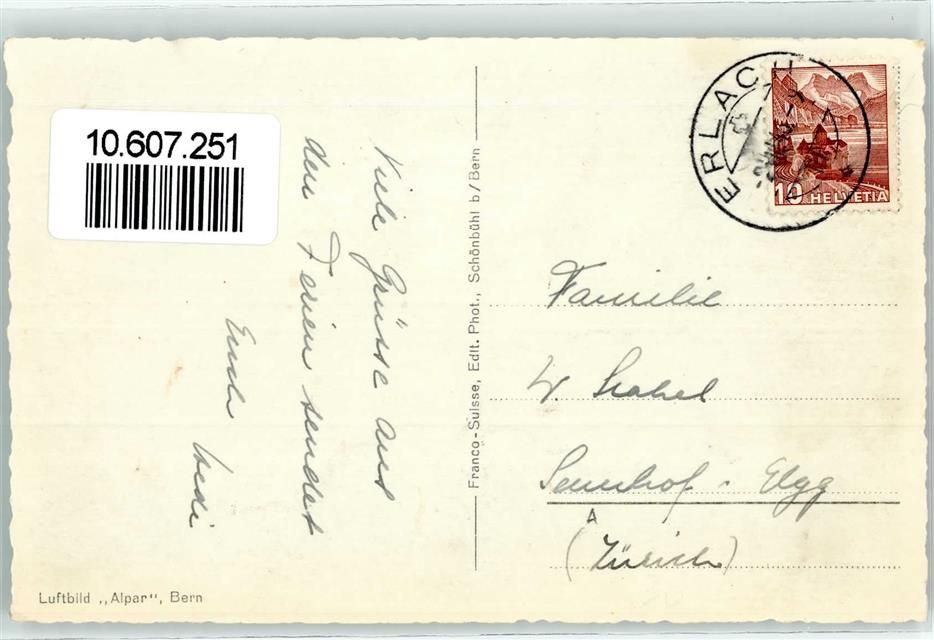 10.607.251
Viele Grüsse aus
den Ferien sendet
Hedi
Franco-Suisse, Edit. Phot., Schönbühl b/Bern
Luftbild „Alpar", Bern
ERLACH
10 HELVETIA
Familie
W.
Sennhof - Elgg
(Zürich)